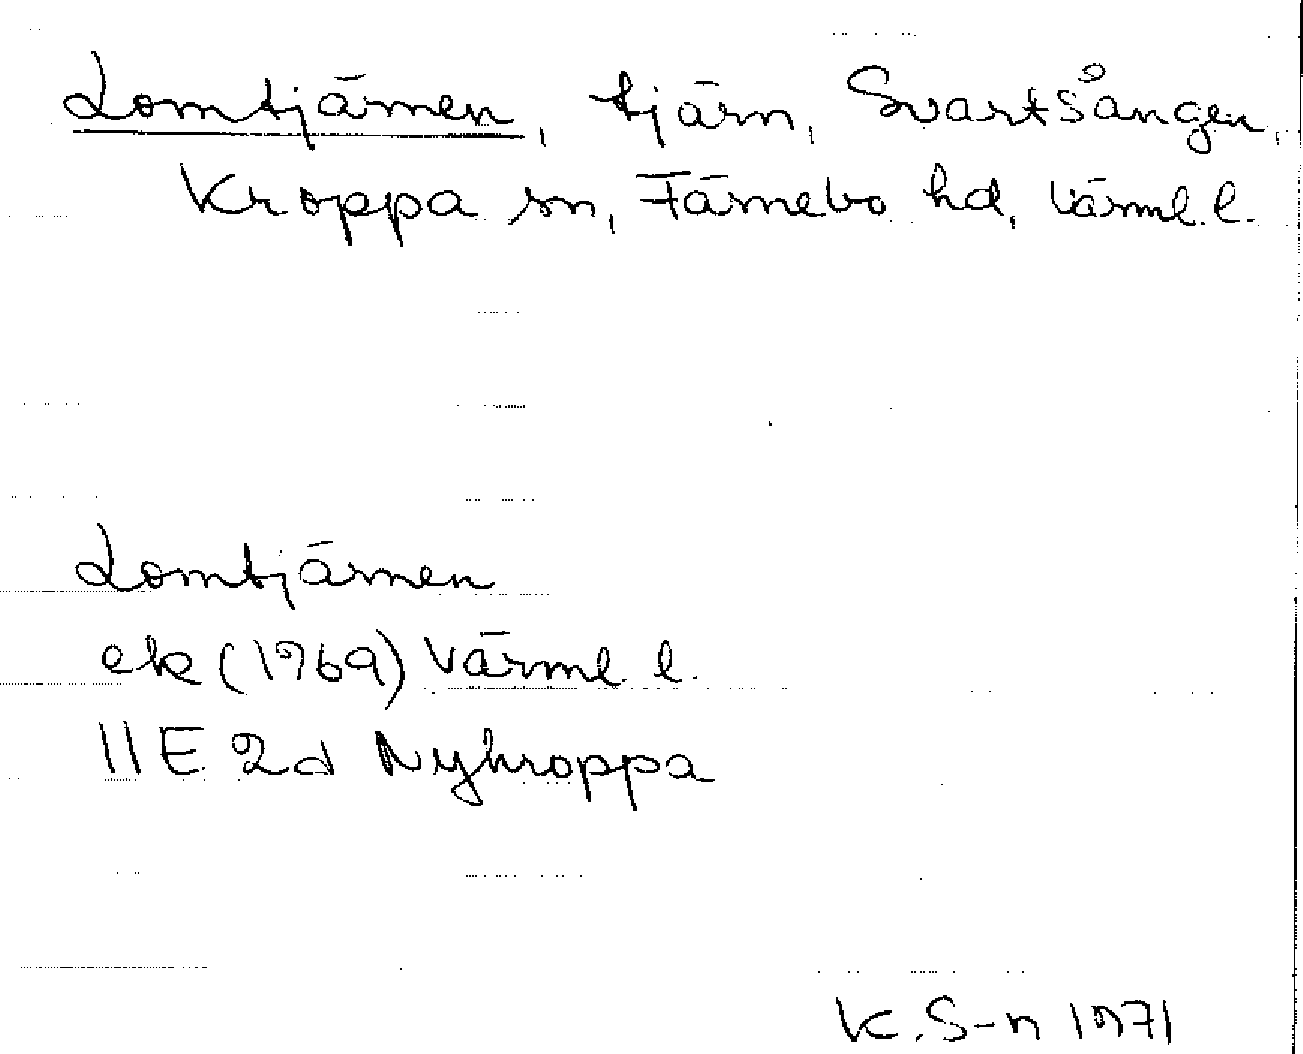 Lomtjärnen, tjärn, Svartsången,
Kroppa sn, Färnebo hd, Värml. l.
Lomtjärnen
ek (1969) Värml. l.
11E 2d Nykroppa
K. S-n 1971